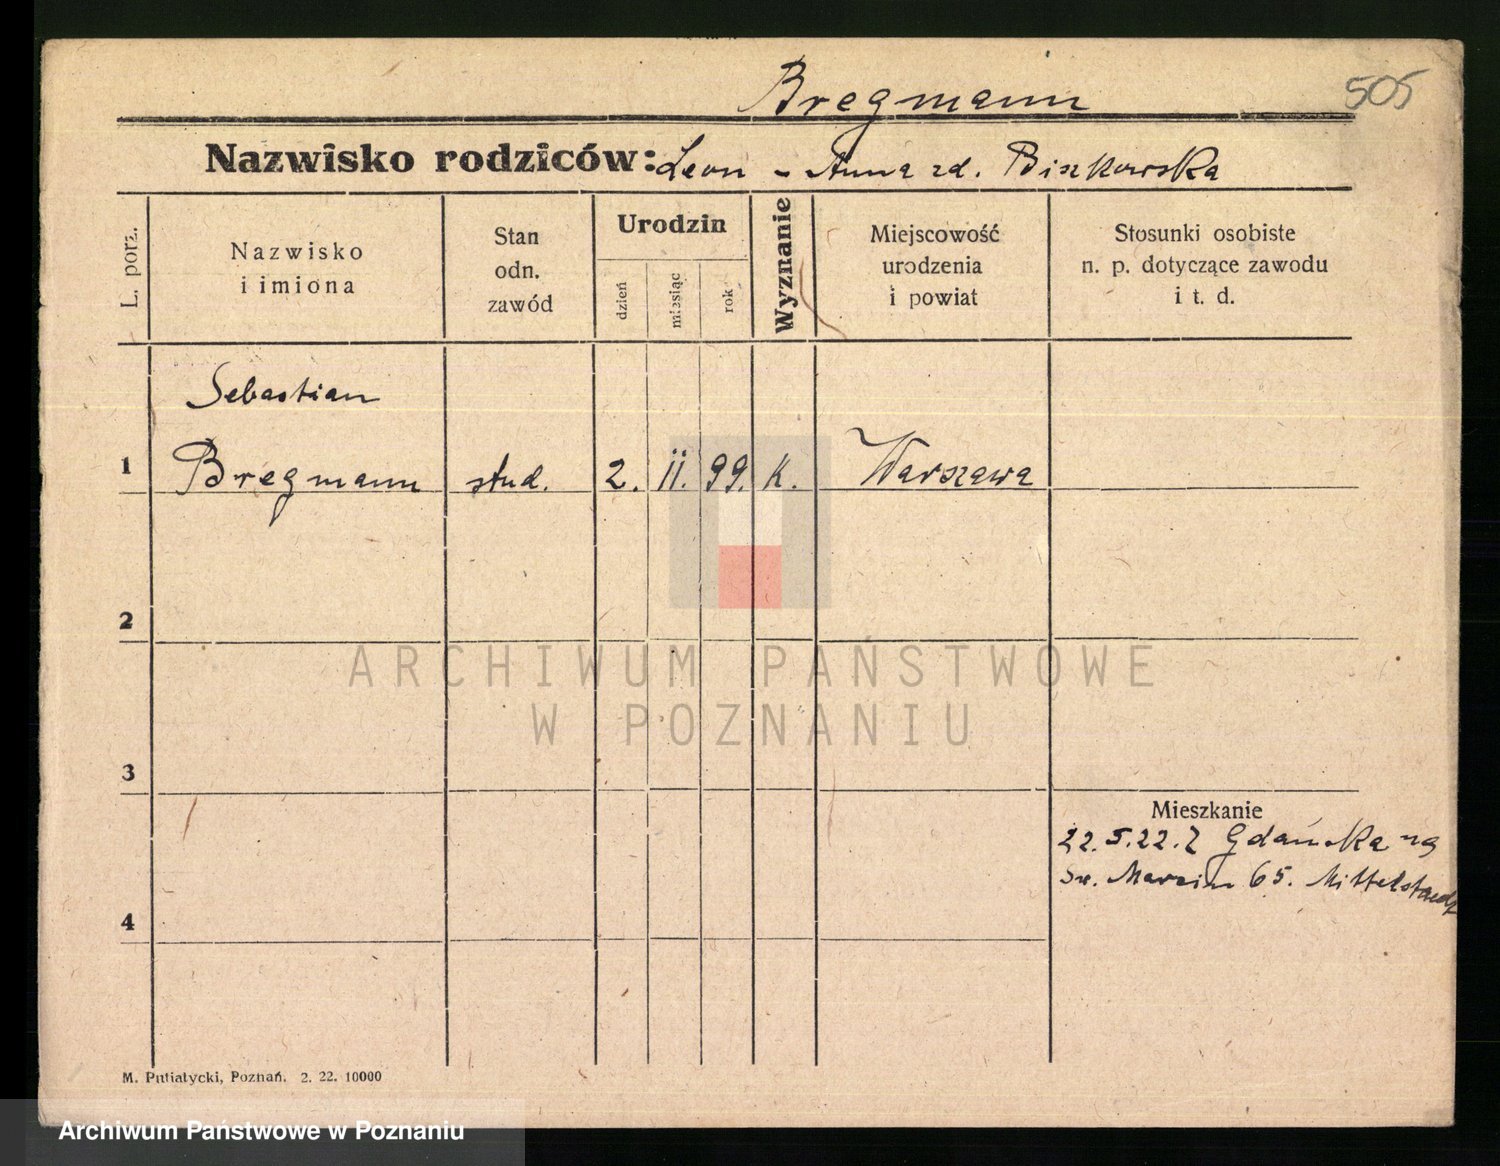 Bregmann
505
Nazwisko rodziców: Leon - Anna zd. Biszkowska
L. porz.
Nazwisko
i imiona
Stan
odn.
zawód
Urodzin
dzień
miesiąc
rok
Wyznanie
Miejscowość
urodzenia
i powiat
Stosunki osobiste
n. p. dotyczące zawodu
i t. d.
Sebastian
1 Bregmann stud. 2. II. 99. K. Warszawa
2
ARCHIWUM PAŃSTWOWE
W POZNANIU
3
Mieszkanie
22.5.22. Z Gdańska na
Św. Marcin 65. Mittelstaedt
4
M. Putiatycki, Poznań. 2. 22. 10000
Archiwum Państwowe w Poznaniu